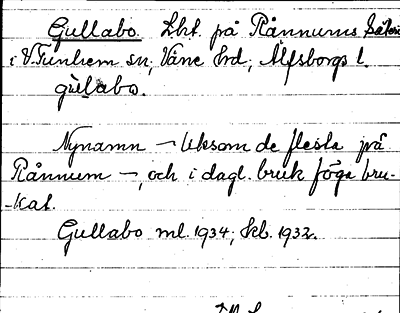 Gullabo. Lht. på Rånnums Säteri
i V. Tunhem sn, Väne hd, Älfsborgs l.
gùlabo.
Nynamn – liksom de flesta på
Rånnum –, och i dagl. bruk föga bru-
-kat.
Gullabo ml. 1934; kb. 1932.